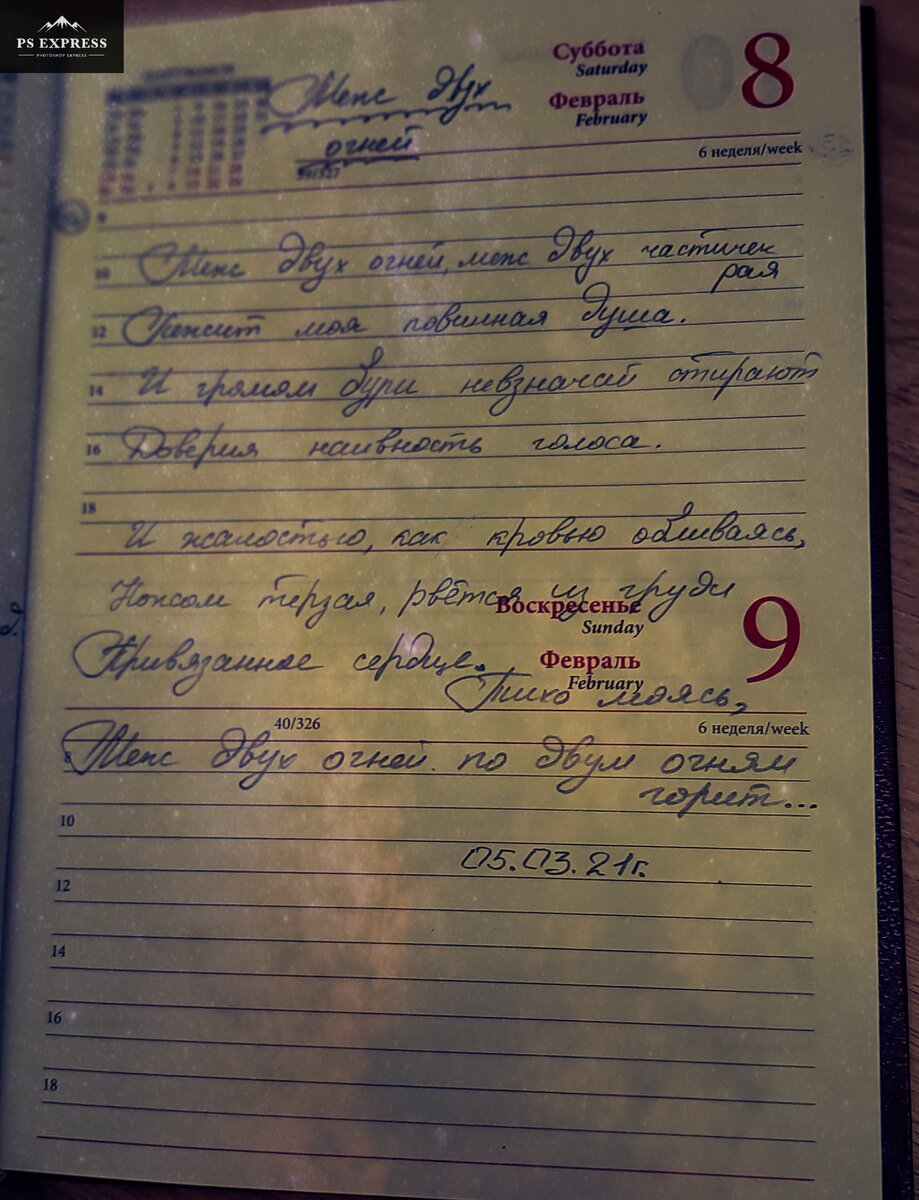 PS EXPRESS
PHOTOSHOP EXPRESS
Суббота
Saturday
8
Февраль
February
6 неделя/week
Меж двух
огней
39/327
9
10 Меж двух огней, меж двух частичек
рая
12 Лежит моя повинная душа.
14 И громом бури невзначай стирают
16 Доверия наивность голоса.
18
И жалостью, как кровью обливаясь,
Ножом терзая, рвётся из груди
Воскресенье
Sunday
9
Февраль
February
Привязанное сердце.
Тихо маясь,
40/326
6 неделя/week
8 Меж двух огней по двум огням
горит...
10
05.03.21г.
12
14
16
18